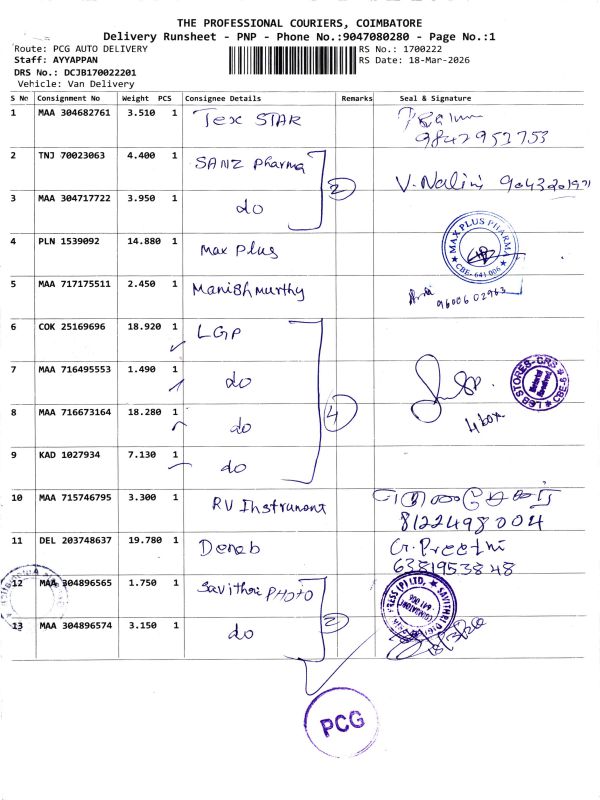 THE PROFESSIONAL COURIERS, COIMBATORE
Delivery Runsheet - PNP - Phone No.:9047080280 - Page No.:1
Route: PCG AUTO DELIVERY
RS No.: 1700222
Staff: AYYAPPAN
RS Date: 18-Mar-2026
DRS No.: DCJB170022201
Vehicle: Van Delivery
S No Consignment No Weight PCS Consignee Details Remarks Seal & Signature
1 MAA 304682761 3.510 1 Tex STAR
9842953753
2 TNJ 70023063 4.400 1 SANZ Pharma
2 V. Nalini
3 MAA 304717722 3.950 1 do
4 PLN 1539092 14.880 1 Max Plus
MAX PLUS PHARMA
CBE-641 006
5 MAA 717175511 2.450 1 Manishmurthy
9600602963
6 COK 25169696 18.920 1 LGP
7 MAA 716495553 1.490 1 do
LGB STORES-CRS
4 4 box
8 MAA 716673164 18.280 1 do
9 KAD 1027934 7.130 1 do
10 MAA 715746795 3.300 1 RV Instrument
8122498004
11 DEL 203748637 19.780 1 Deneb
G. Preethi
6381953848
12 MAA 304896565 1.750 1 Savithri Photo
2
13 MAA 304896574 3.150 1 do
PCG